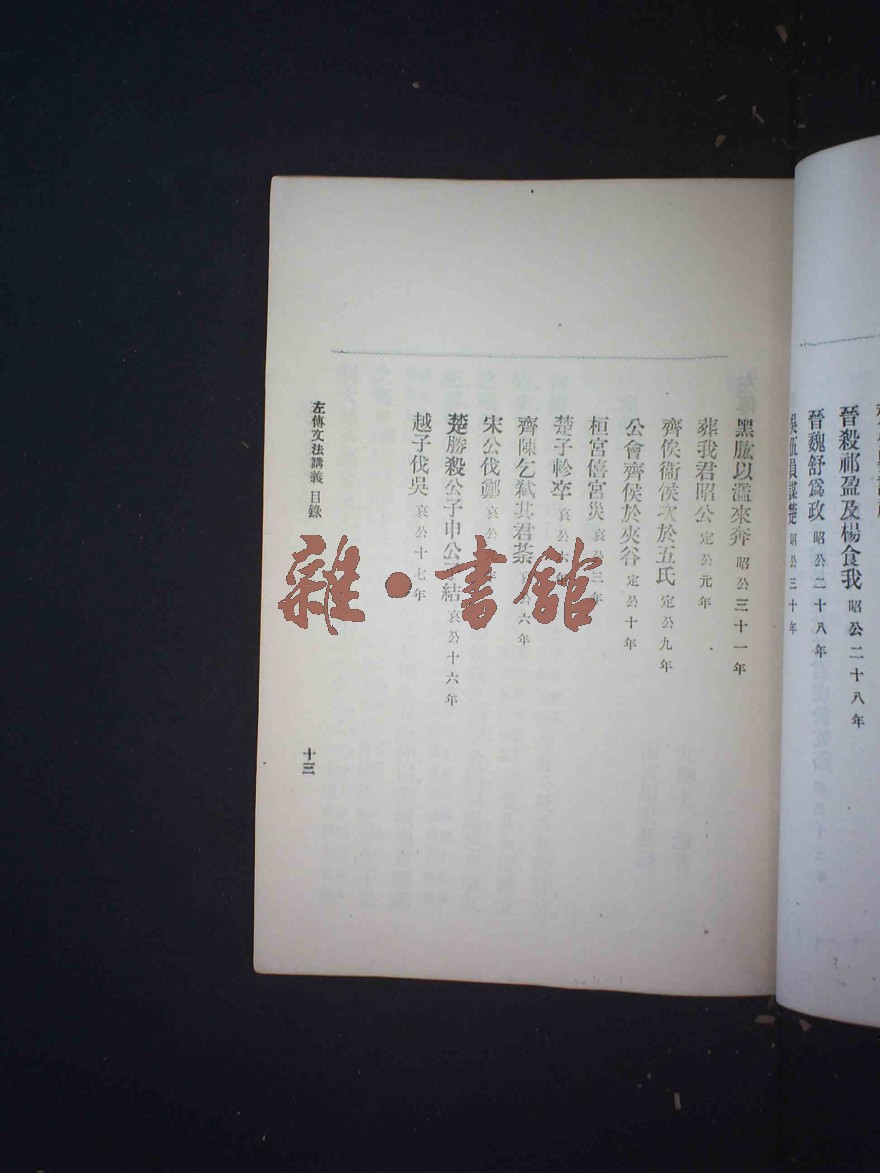 晉殺祁盈及楊食我 昭公二十八年
晉魏舒爲政 昭公二十八年
吳伍員謀楚 昭公三十年
黑肱以濫來奔 昭公三十一年
葬我君昭公 定公元年
齊侯衞侯次於五氏 定公九年
公會齊侯於夾谷 定公十年
桓宮僖宮災 哀公三年
楚子軫卒 哀公六年
齊陳乞弒其君荼 公六年
宋公伐鄭 哀公
楚勝殺公子申公子結 哀公十六年
越子伐吳 哀公十七年
左傳文法講義 目錄
十三
雜·書館